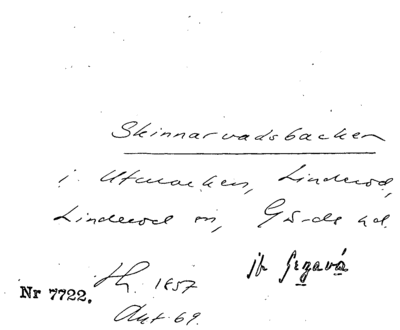 Skinnarvadsbacken
i Utmarken, Linderöd,
Linderöd sn, Gärds hd.
jfr
Nr 7722. 1857
Akt 69.